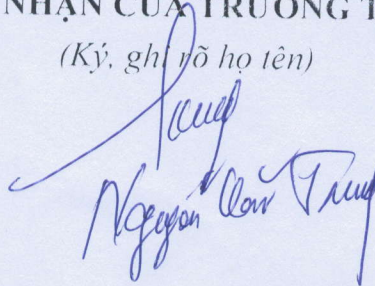 NHẬN CỦA TRƯỞNG T
(Ký, ghi rõ họ tên)
Nguyễn Văn Trung